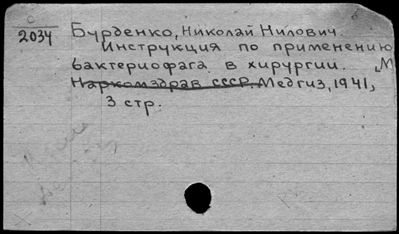 С
2034
Бурденко, Николай Нилович.
Инструкция по применению
бактериофага в хирургии. М
Наркомздрав СССР. Медгиз, 1941,
3 стр.